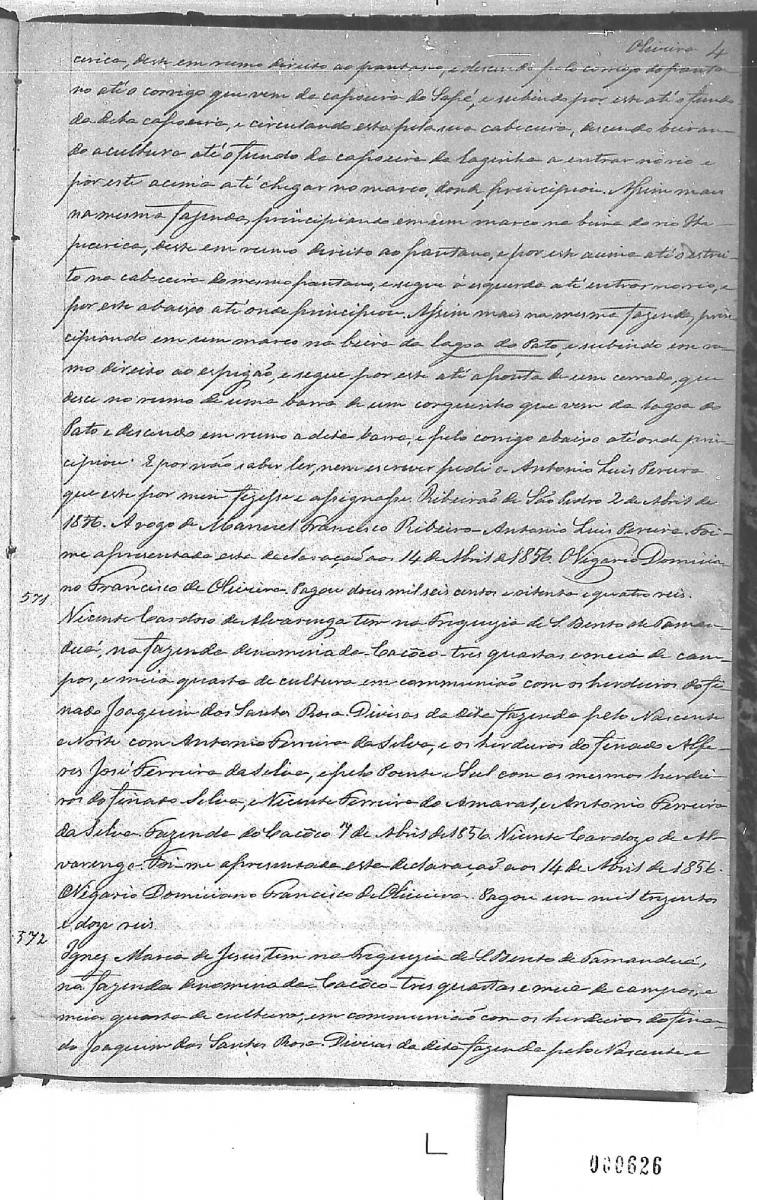 Oliveira 4
cerica, deste em rumo direito ao pantano, e descendo pelo corrigo do panta-
no até o corrigo que vem da capoeira do Sapé, e subindo por este até o fundo
da dita capoeira, e circulando esta pela sua cabeceira, descendo beiran-
do a cultura até o fundo da capoeira da Lagoinha a entrar no rio e
por este acima até chegar no marco, donde principiou. Assim mais
na mesma fazenda, principiando em um marco na beira do rio Ita-
pecerica, deste em rumo direito ao pantano, e por este acima até o estrei-
to na cabeceira do mesmo pantano, e segue á esquerda até entrar no rio, e
por este abaixo até onde principiou. Assim mais na mesma fazenda, prin-
cipiando em um marco na beira da lagoa do Pato, e subindo em ru-
mo direito ao espigão, e segue por este até a ponta de um cerrado, que
desce no rumo de uma barra de um corguinho que vem da lagoa do
Pato e descendo em rumo a dita barra, e pelo corrigo abaixo até onde prin-
cipiou. E por não saber ler, nem escrever pedi a Antonio Luis Pereira
que este por mim fizesse e assignasse. Ribeirão de São Pedro 2 de Abril de
1856. A rogo de Manuel Francisco Ribeiro Antonio Luis Pereira. Foi-
me apresentada esta declaração aos 14 de Abril de 1856. O Vigario Domicia-
no Francisco de Oliveira. Pagou dous mil seis centos e oitenta e quatro reis.
571
Vicente Cardoso de Alvarenga tem na Freguezia de S. Bento de Taman-
duá, na fazenda denominada Cacôco tres quartas e meia de cam-
pos, e meia quarta de cultura em communião com os herdeiros do fi-
nado Joaquim dos Santos Rosa. Divisas da dita fazenda pelo Nascente
e Norte com Antonio Ferreira da Silva, e os herdeiros do finado Alfe-
res José Ferreira da Silva, e pelo Poente e Sul com os mesmos herdei-
ros do finado Silva, e Vicente Ferreira do Amaral, e Antonio Ferreira
da Silva. Fazenda do Cacôco 7 de Abril de 1856. Vicente Cardozo de Al-
varenga. Foi me apresentada esta declaração aos 14 de Abril de 1856.
O Vigario Domiciano Francisco de Oliveira. Pagou um mil trezentos
e doze reis.
572
Ignez Maria de Jesus tem na Freguezia de S. Bento de Tamanduá,
na fazenda denominada Cacôco tres quartas e meia de campos, e
meia quarta de cultura, em communião com os herdeiros do fina-
do Joaquim dos Santos Rosa. Divisas da dita fazenda pelo Nascente e
000626